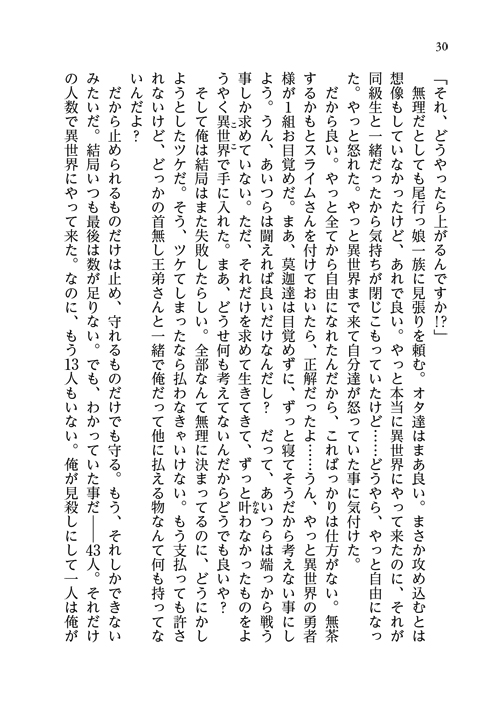 30
「それ、どうやったら上がるんですか!?」
　無理だとしても尾行っ娘一族に見張りを頼む。オタ達はまあ良い。まさか攻め込むとは
想像もしていなかったけど、あれで良い。やっと本当に異世界にやって来たのに、それが
同級生と一緒だったから気持ちが閉じこもっていたけど……どうやら、やっと自由になっ
た。やっと怒れた。やっと異世界まで来て自分達が怒っていた事に気付けた。
　だから良い。やっと全てから自由になれたんだから、こればっかりは仕方がない。無茶
するかもとスライムさんを付けておいたら、正解だったよ……うん、やっと異世界の勇者
様が1組お目覚めだ。まあ、莫迦達は目覚めずに、ずっと寝てそうだから考えない事にし
よう。うん、あいつらは闘えれば良いだけなんだし？　だって、あいつらは端っから戦う
事しか求めていない。ただ、それだけを求めて生きてきて、ずっと叶わなかったものをよ
うやく異世界で手に入れた。まあ、どうせ何も考えてないんだからどうでも良いや？
　そして俺は結局はまた失敗したらしい。全部なんて無理に決まってるのに、どうにかし
ようとしたツケだ。そう、ツケてしまったなら払わなきゃいけない。もう支払っても許さ
れないけど、どっかの首無し王弟さんと一緒で俺だって他に払える物なんて何も持ってな
いんだよ？
　だから止められるものだけは止め、守れるものだけでも守る。もう、それしかできない
みたいだ。結局いつも最後は数が足りない。でも、わかっていた事だ――43人。それだけ
の人数で異世界にやって来た。なのに、もう13人もいない。俺が見殺しにして一人は俺が